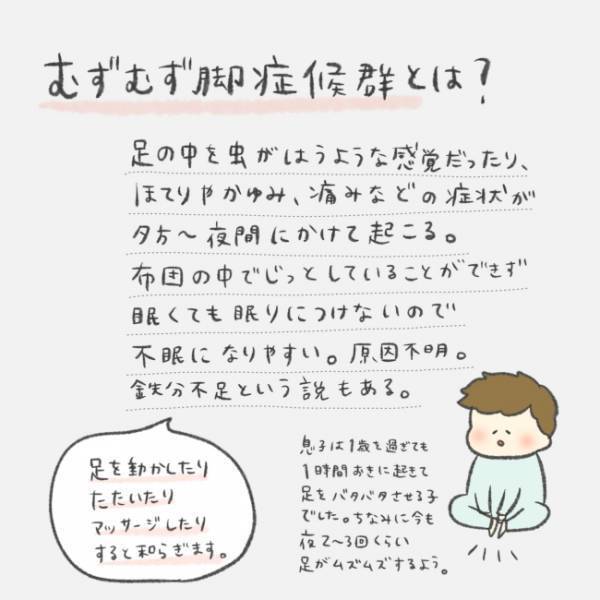 むずむず脚症候群とは?
足の中を虫がはうような感覚だったり、
ほてりやかゆみ、痛みなどの症状が
夕方〜夜間にかけて起こる。
布団の中でじっとしていることができず
眠くても眠りにつけないので
不眠になりやすい。原因不明。
鉄分不足という説もある。
足を動かしたり
たたいたり
マッサージしたり
すると和らぎます。
息子は1歳を過ぎても
1時間おきに起きて
足をバタバタさせる子
でした。ちなみに今も
夜2〜3回くらい
足がムズムズするよう。